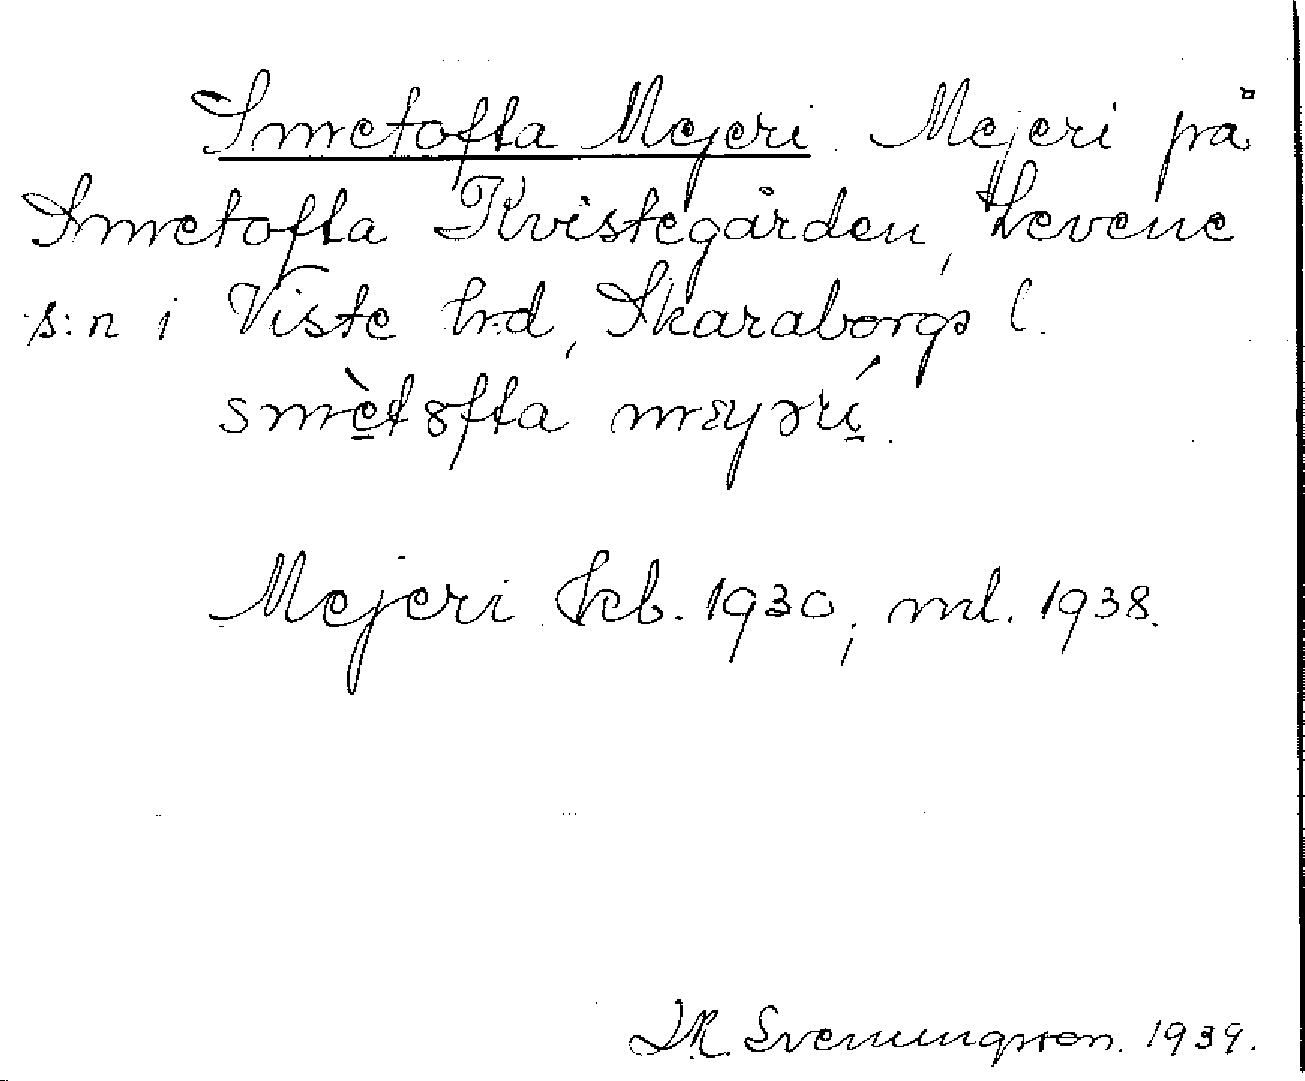 Smetofta Mejeri. Mejeri på
Smetofta Kvistegården, Levene
s:n i Viste hrd, Skaraborgs l.
smètofta mɛyərí.
Mejeri Jeb. 1930, ml. 1938.
Sveningsson. 1939.